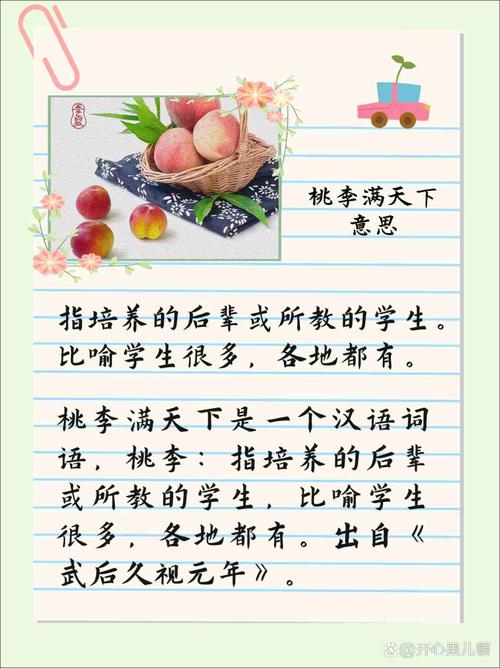 桃李满天下
意思
指培养的后辈或所教的学生。
比喻学生很多，各地都有。
桃李满天下是一个汉语词
语，桃李：指培养的后辈
或所教的学生，比喻学生
很多，各地都有。出自《
武后久视元年》。
开心果儿喔